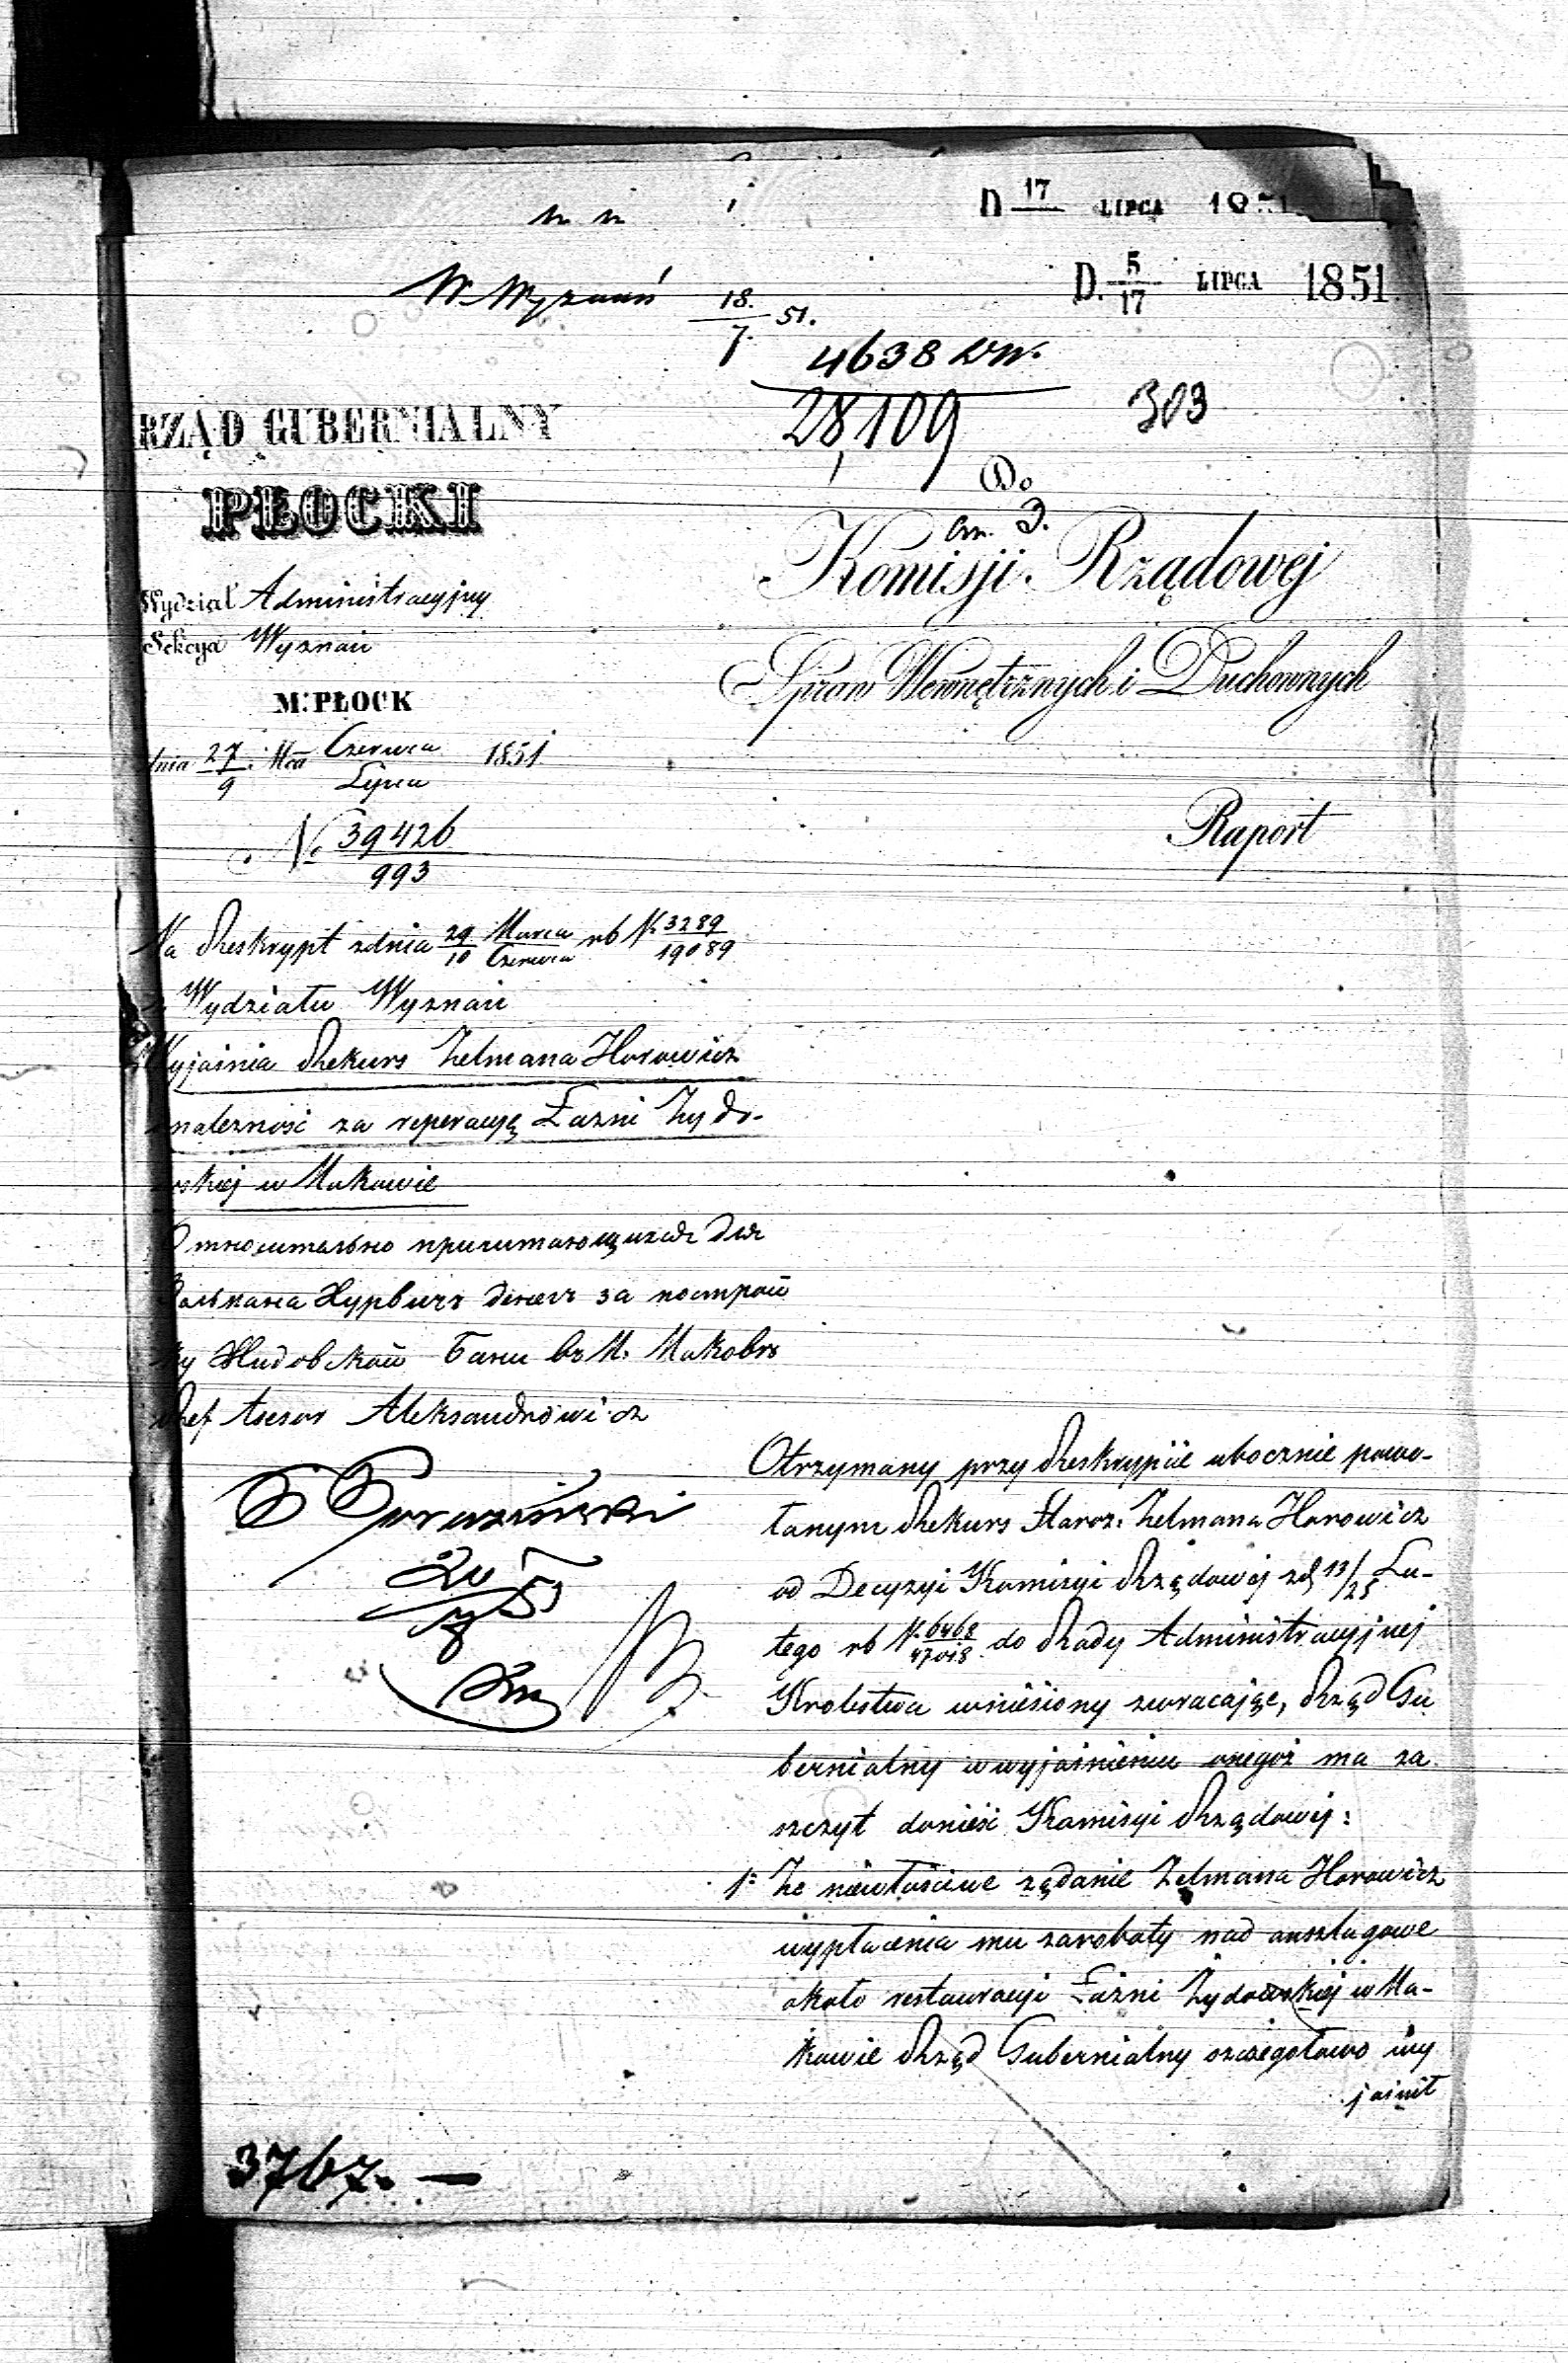 D 17 LIPCA 1851
D. 5/17 LIPCA 1851
W. Wyznań 18./7. 51.
4638 WW.
28,109
303
RZĄD GUBERNIALNY
PŁOCKI
Wydział Administracyjny
Sekcya Wyznań
M. PŁOCK
dnia 27/9 Mca Czerwca/Lipca 1851
No 39426/993
Do
Komisji Rządowej
Spraw Wewnętrznych i Duchownych
Raport
Na Reskrypt zdnia 29/10 Marca/Czerwca rb N. 3289/19089
z Wydziału Wyznań
Wyjaśnia Rekurs Zelmana Horowicz
należność za reperacyą Łazni Żydo-
wskiej w Makowie
Относительно причитающихся для
Зальмана Хурвичъ денегъ за построй
ку Жидовской Бани въ М. Маковѣ
Ref Asesor Aleksandrowicz
Otrzymany przy Reskrypcie ubocznie powo-
łanym Rekurs Staroz. Zelmana Horowicz
od Decyzyi Komisyi Rządowej zd 13/25 Lu-
tego rb N. 6468/47018 do Rady Administracyjnej
Krolestwa wniesiony zwracając, Rząd Gu
bernialny w wyjaśnieniu onegoż ma za
szczyt donieść Komisyi Rządowej:
1= Że niewłaściwe żądanie Zelmana Horowicz
wypłacenia mu zaroboty nad anszlagowe
około restauracyi Łazni Żydowskiej w Ma-
kowie Rząd Gubernialny szczegołowo wy
jaśnił
3767. —